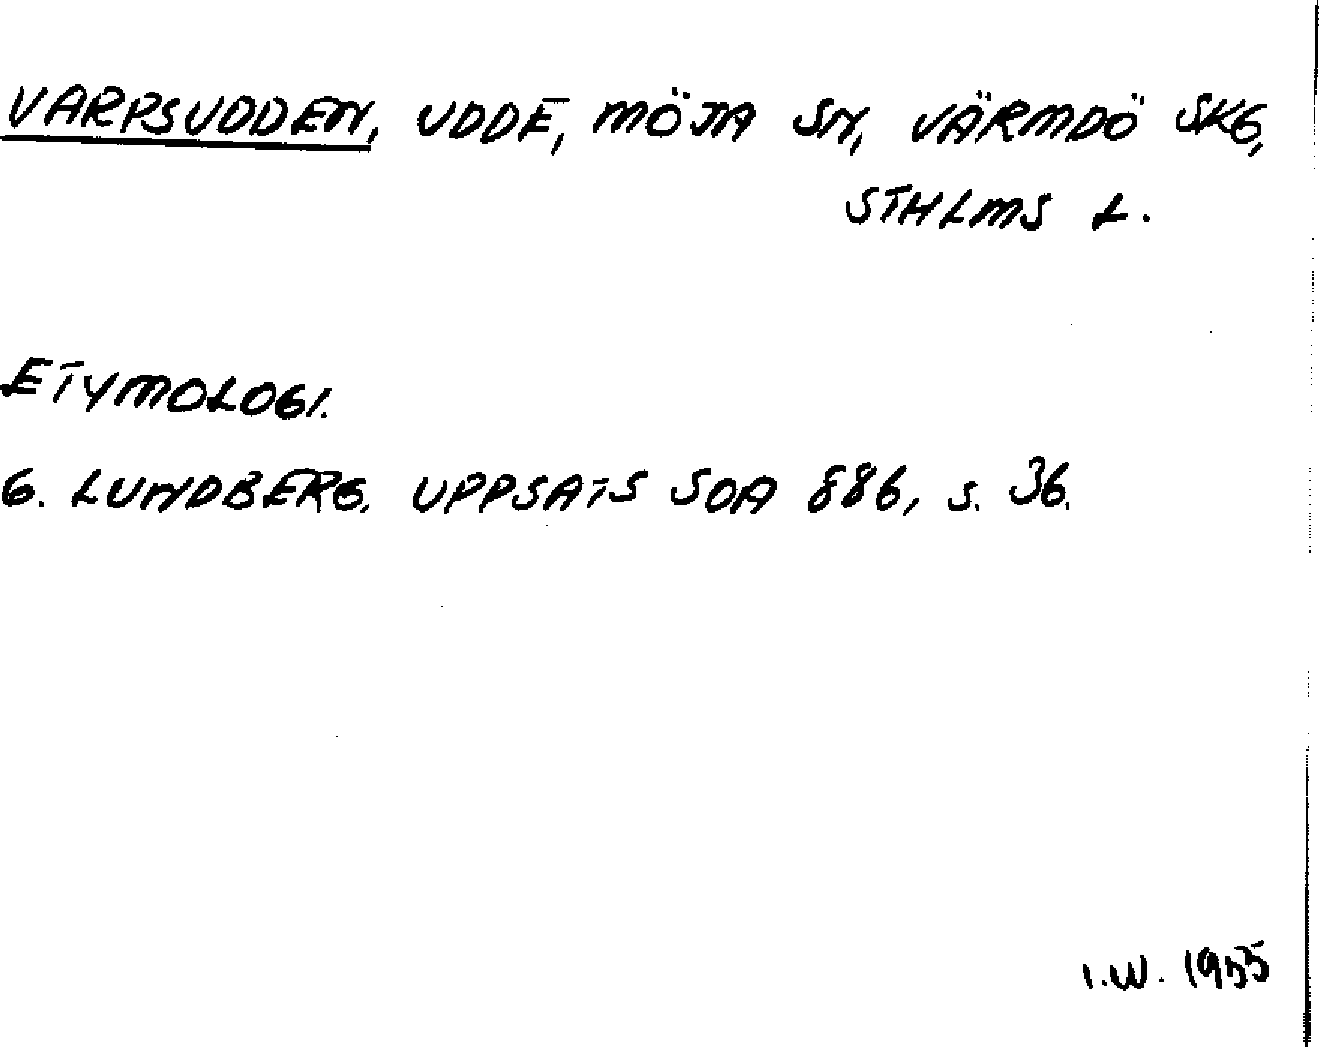 VARPSUDDEN, UDDE, MÖJA SN, VÄRMDÖ SKG,
STHLMS L.
ETYMOLOGI.
G. LUNDBERG. UPPSATS SOA 886, S. 36.
I.W. 1955